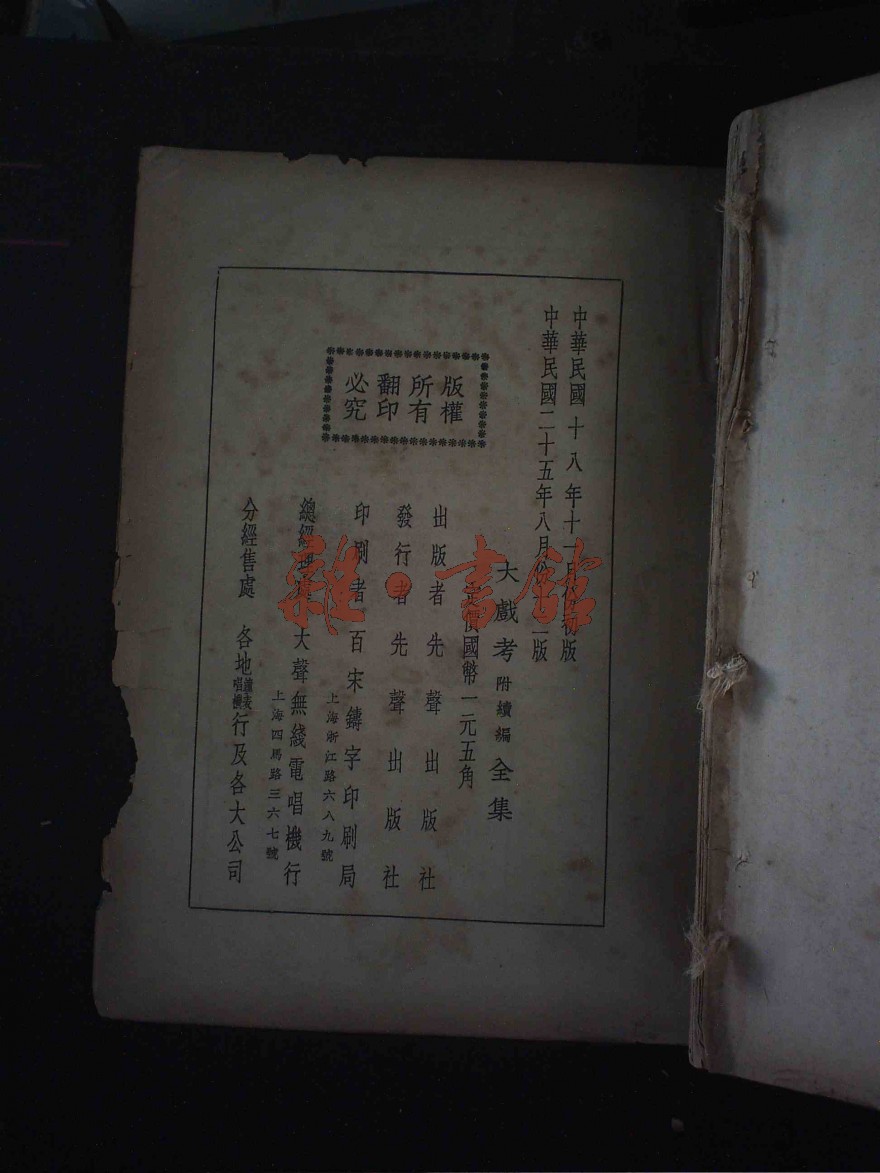 中華民國十八年十一月初版
中華民國二十五年八月二版
大戲考附續編全集
定價國幣一元五角
出版者先聲出版社
發行者先聲出版社
印刷者百宋鑄字印刷局
上海浙江路六八九號
總經理大聲無綫電唱機行
上海四馬路三六七號
分經售處各地鐘表唱機行及各大公司
版權
所有
翻印
必究
雜·書館